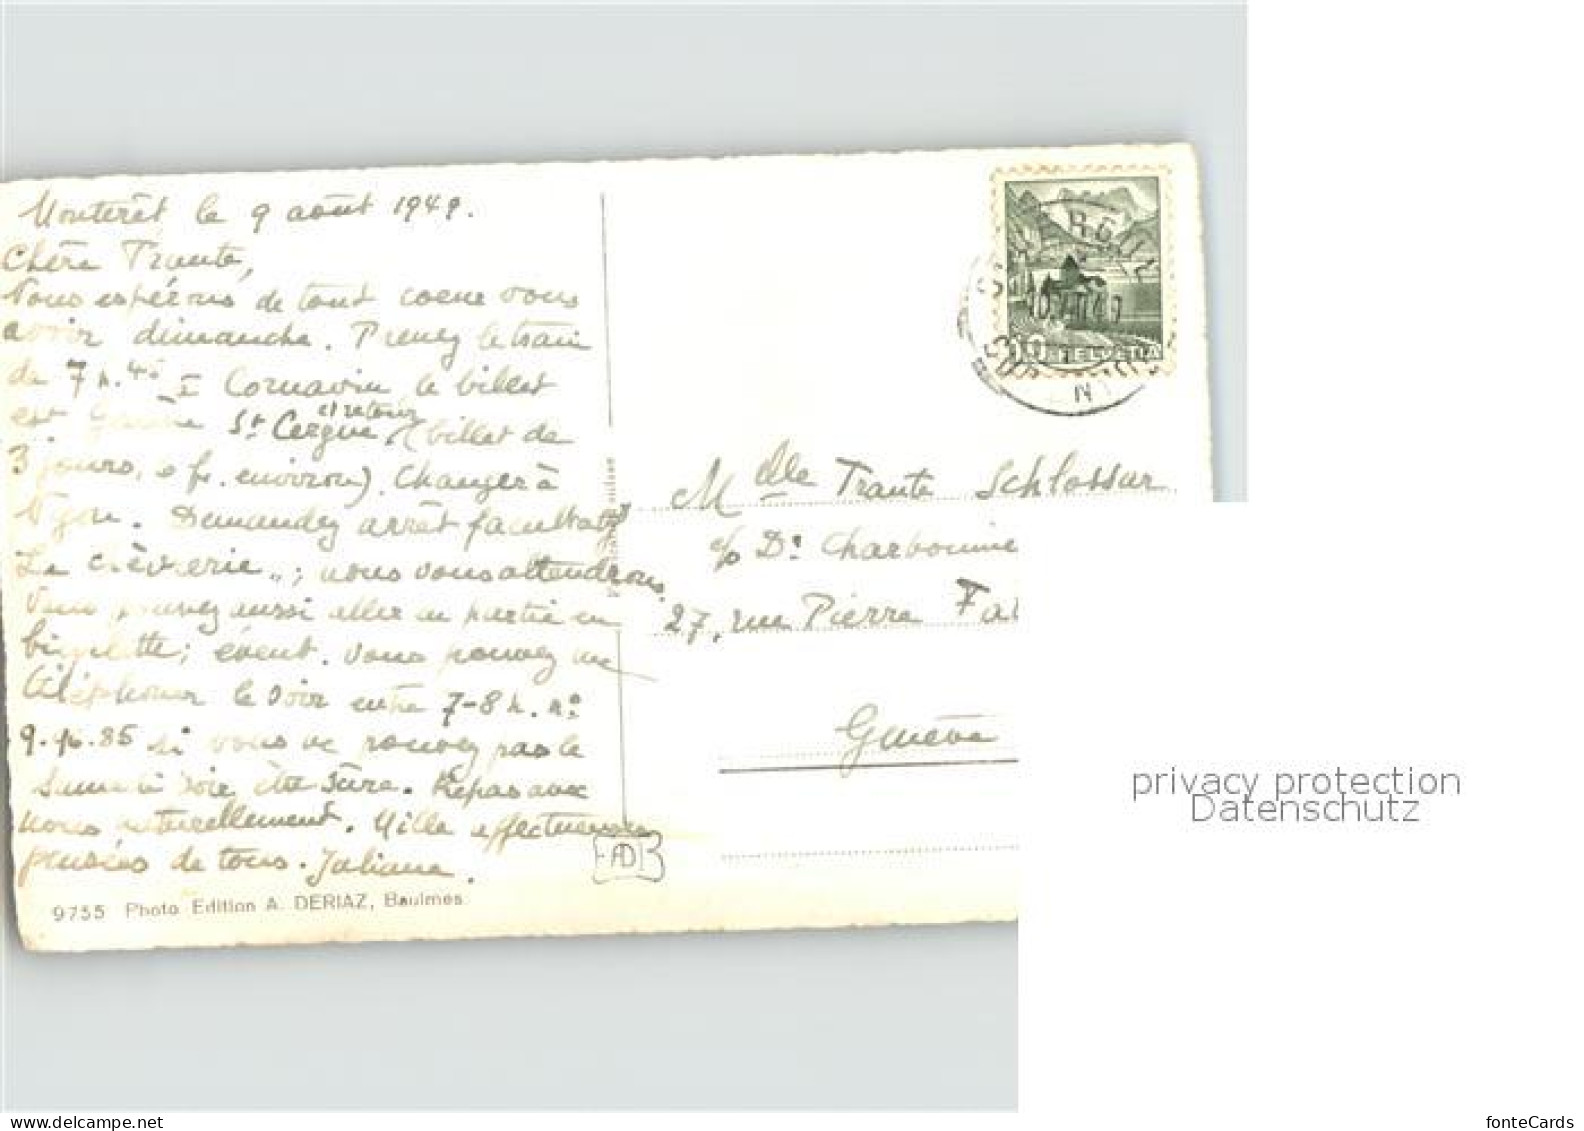 Monterêt le 9 août 1949.
Chère Traute,
Nous espérons de tout coeur vous
avoir dimanche. Prenez le train
de 7 h. 45 Cornavin le billet
est Genève St Cergue et retour (billet de
3 jours, fr. environ). Changer à
Nyon. Demandez arrêt facultatif
La chèvrerie"; nous vous attendrons.
Vous pouvez aussi aller en partie en
bicyclette; évent. vous pouvez me
téléphoner le soir entre 7-8 h. no
9. 85 si vous ne pouvez pas le
être sûre. Repas avec
nous naturellement. Mille affectueuses
pensées de tous. Juliana.
9755 Photo Edition A. DERIAZ, Baulmes
AD
HELVETIA
Melle Traute Schlosser
c/o Dr Charbonnie
27, rue Pierre Fat
Genève
privacy protection
Datenschutz
fonteCards
www.delcampe.net